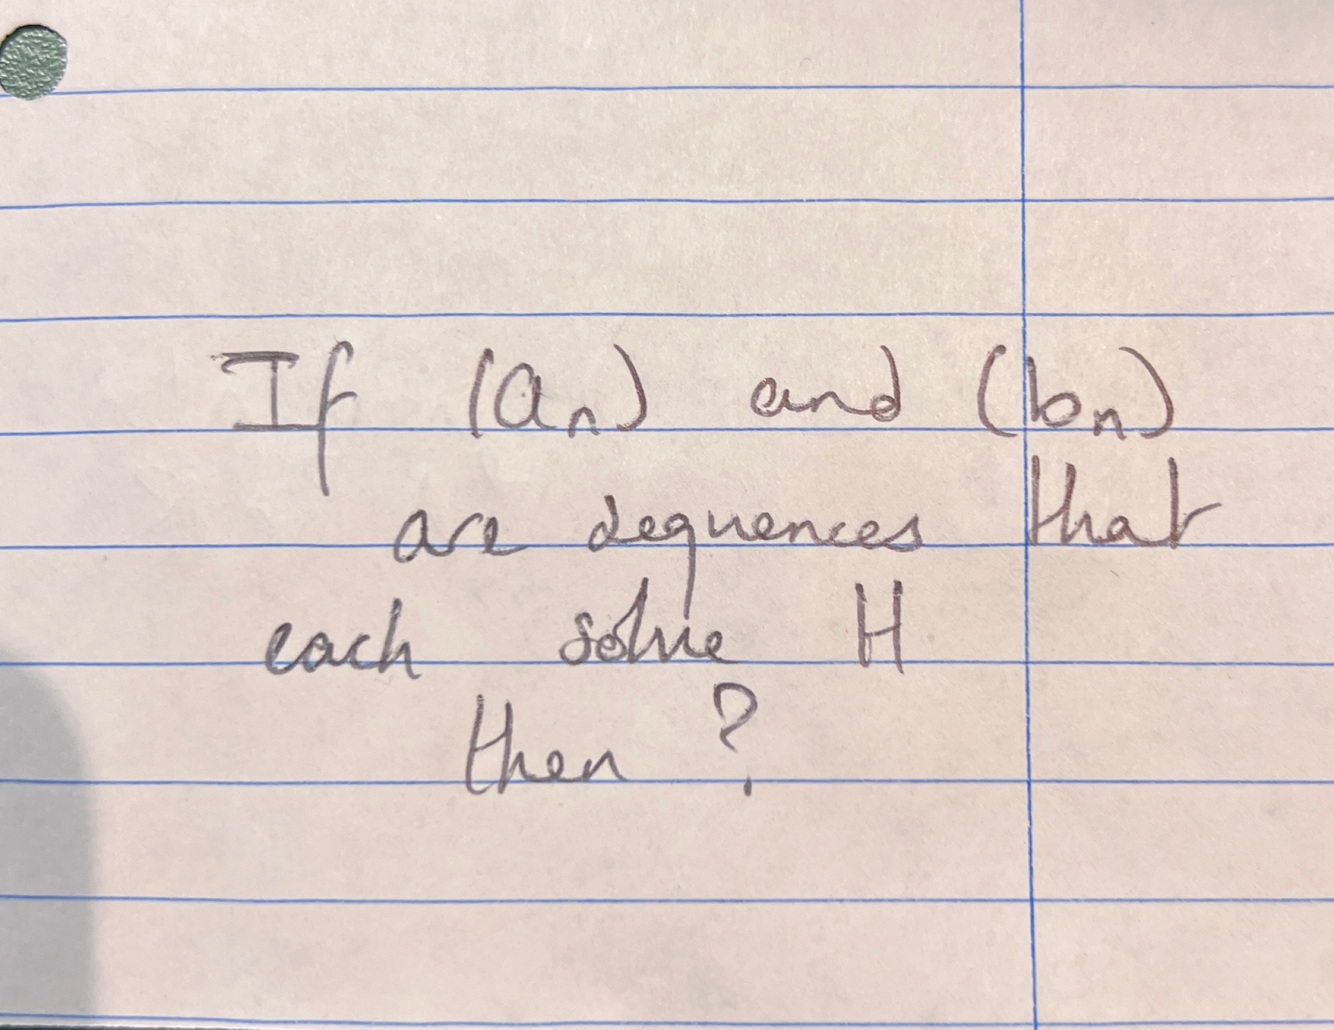 If (aₙ) and (bₙ)
are sequences that
each solve H
then ?